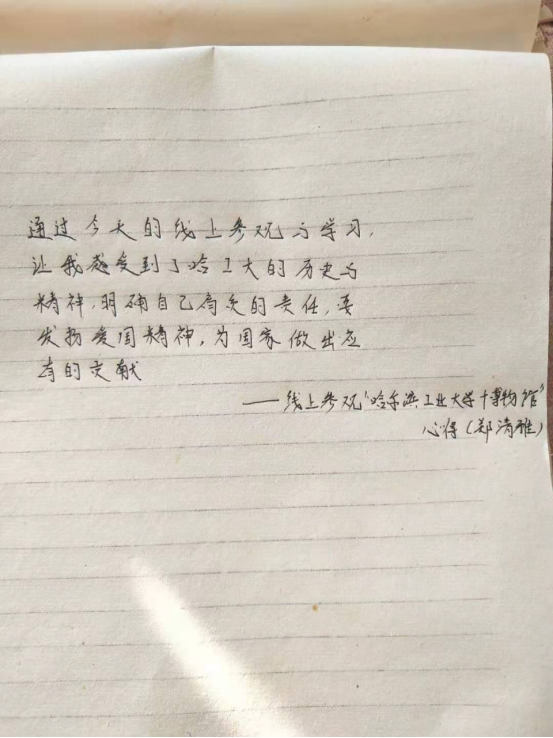 通过今天的线上参观与学习,
让我感受到了哈工大的历史与
精神,明确自己肩负的责任,要
发扬爱国精神,为国家做出应
有的文献
——线上参观"哈尔滨工业大学博物馆"
心得(郑清雅)